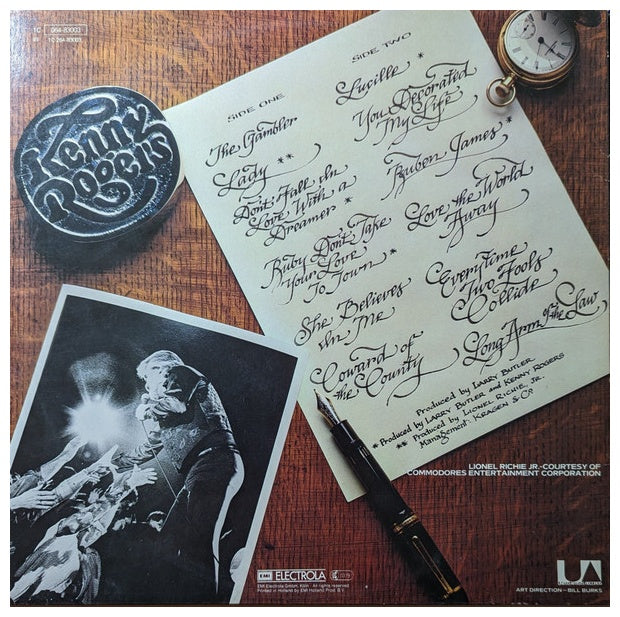 1C 064-83003
1C 264-83003
Kenny
Rogers
SIDE ONE
The Gambler
Lady **
Don't Fall In
Love With a
Dreamer *
Ruby Don't Take
Your Love
To Town *
She Believes
In Me
Coward of
the County
SIDE TWO
Lucille *
You Decorated
My Life
Ruben James *
Love the World
Away
Everytime
Two Fools
Collide
Long Arm of the Law
Produced by LARRY BUTLER
*Produced by LARRY BUTLER and KENNY ROGERS
** Produced by LIONEL RICHIE, JR.
Management: KRAGEN & Co
LIONEL RICHIE JR.-COURTESY OF
COMMODORES ENTERTAINMENT CORPORATION
EMI ELECTROLA
EMI Electrola GmbH, Köln · All rights reserved
Printed in Holland by EMI Holland Prod. B.V.
UA
UNITED ARTISTS RECORDS
ART DIRECTION-BILL BURKS